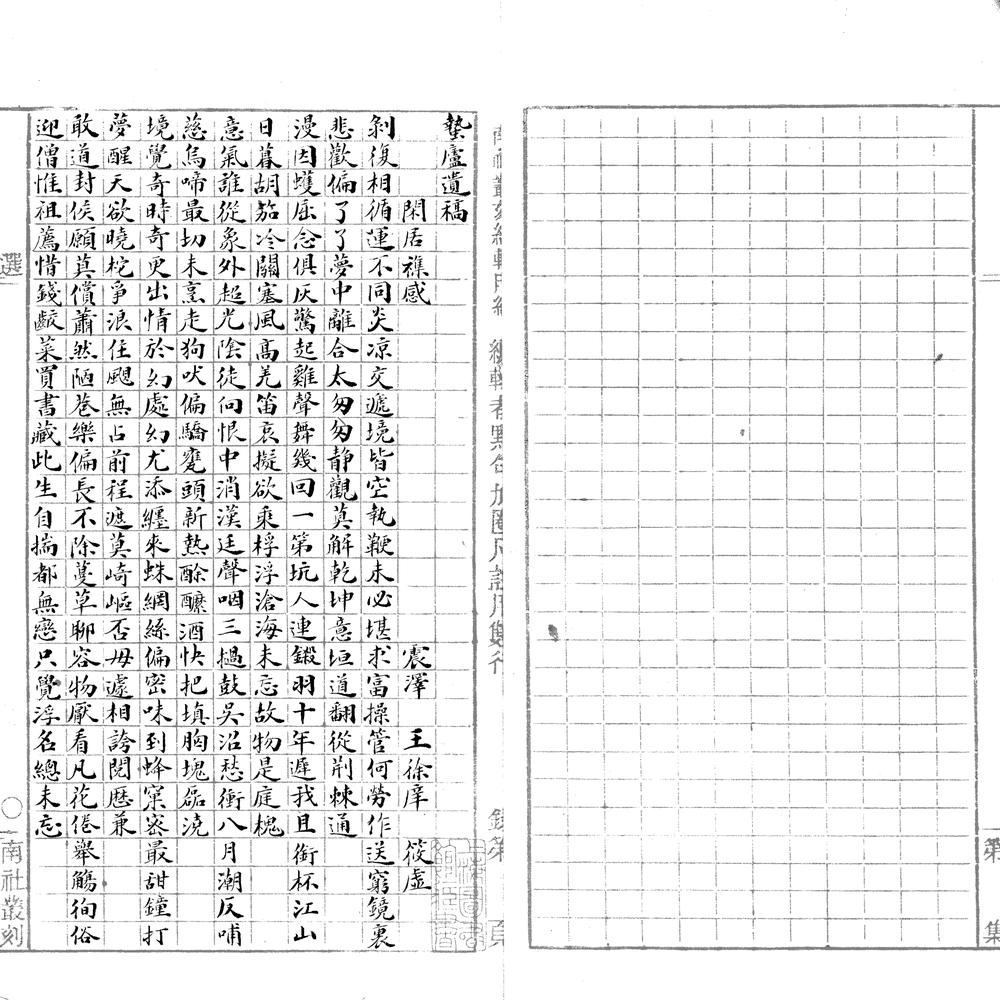 蟄廬遺稿
閑居襍感 震澤 王徐庠 筱虛
剝復相循運不同炎凉交遞境皆空執鞭未必堪求富操管何勞作送窮鏡裏
悲歡偏了了夢中離合太匆匆靜觀莫解乾坤意垣道翻從荆棘通
漫因蠖屈念俱灰驚起雞聲舞幾回一第坑人連鎩羽十年遲我且銜杯江山
日暮胡笳冷關塞風高羌笛哀擬欲乘桴浮滄海未忘故物是庭槐
意氣誰從象外超光陰徒向恨中消漢廷聲咽三撾鼓吳沼愁衝八月潮反哺
慈烏啼最切未烹走狗吠偏驕甕頭新熱酴醾酒快把填胸塊磊澆
境覺奇時奇更出情於幻處幻尤添纏來蛛網絲偏密味到蜂窠蜜最甜鐘打
夢醒天欲曉柁爭浪住颶無占前程遮莫崎嶇否毋遽相誇閱歷兼
敢道封侯願莫償蕭然陋巷樂偏長不除蔓草聊容物厭看凡花倦舉觴徇俗
迎僧惟祖薦惜錢齩菜買書藏此生自揣都無戀只覺浮名總未忘
選
○
南社叢刻
第
集